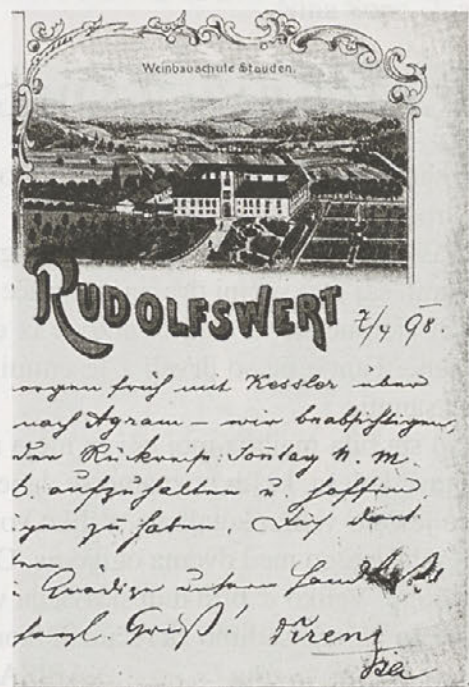 Weinbauschule Stauden.
RUDOLFSWERT 7/4 98.
orgen früh mit Kessler über
nach Agram – wir beabsichtigen,
der Rückreise: Sontag N. M.
aufzuhalten u. hoffen,
igen zu haben, Dich dort
ten
Gnädige unsern
Gruß! Kreng